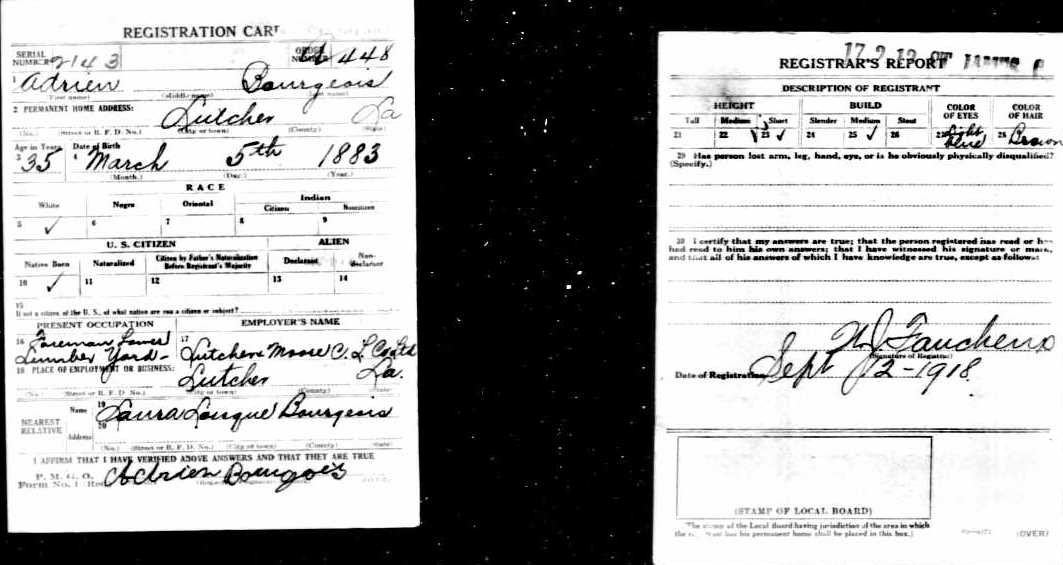 REGISTRATION CARD
SERIAL NUMBER 2143 ORDER NUMBER A 448
1 Adrien Bourgeois
(First name) (Middle name) (Last name)
2 PERMANENT HOME ADDRESS:
Lutcher La
(No.) (Street or R. F. D. No.) (City or town) (County) (State)
Age in Years Date of Birth
3 35 4 March 5th 1883
(Month.) (Day.) (Year.)
RACE
White Negro Oriental Indian
Citizen Noncitizen
5 ✓ 6 7 8 9
U. S. CITIZEN ALIEN
Native Born Naturalized Citizen by Father's Naturalization Before Registrant's Majority Declarant Non-declarant
10 ✓ 11 12 13 14
15
If not a citizen of the U. S., of what nation are you a citizen or subject?
PRESENT OCCUPATION EMPLOYER'S NAME
16 Foreman Lower 17
Lumber Yard- Lutcher Moore C. L Co Ltd
18 PLACE OF EMPLOYMENT OR BUSINESS:
Lutcher La.
(No.) (Street or R. F. D. No.) (City or town) (County) (State)
NEAREST RELATIVE
Name 19 Laura Longue Bourgeois
Address 20
(No.) (Street or R. F. D. No.) (City or town) (County) (State)
I AFFIRM THAT I HAVE VERIFIED ABOVE ANSWERS AND THAT THEY ARE TRUE
P. M. G. O.
Form No. 1 Adrien Bourgois
17 2 12
REGISTRAR'S REPORT
DESCRIPTION OF REGISTRANT
HEIGHT BUILD COLOR OF EYES COLOR OF HAIR
Tall Medium Short Slender Medium Stout
21 22 23 ✓ 24 25 ✓ 26 27 Light blue 28 Brown
29 Has person lost arm, leg, hand, eye, or is he obviously physically disqualified?
(Specify.)
30 I certify that my answers are true; that the person registered has read or has
had read to him his own answers; that I have witnessed his signature or mark,
and that all of his answers of which I have knowledge are true, except as follows:
Faucheux
(Signature of Registrar)
Date of Registration Sept 12-1918
(STAMP OF LOCAL BOARD)
The stamp of the Local Board having jurisdiction of the area in which
the registrant has his permanent home shall be placed in this box.)
(OVER)